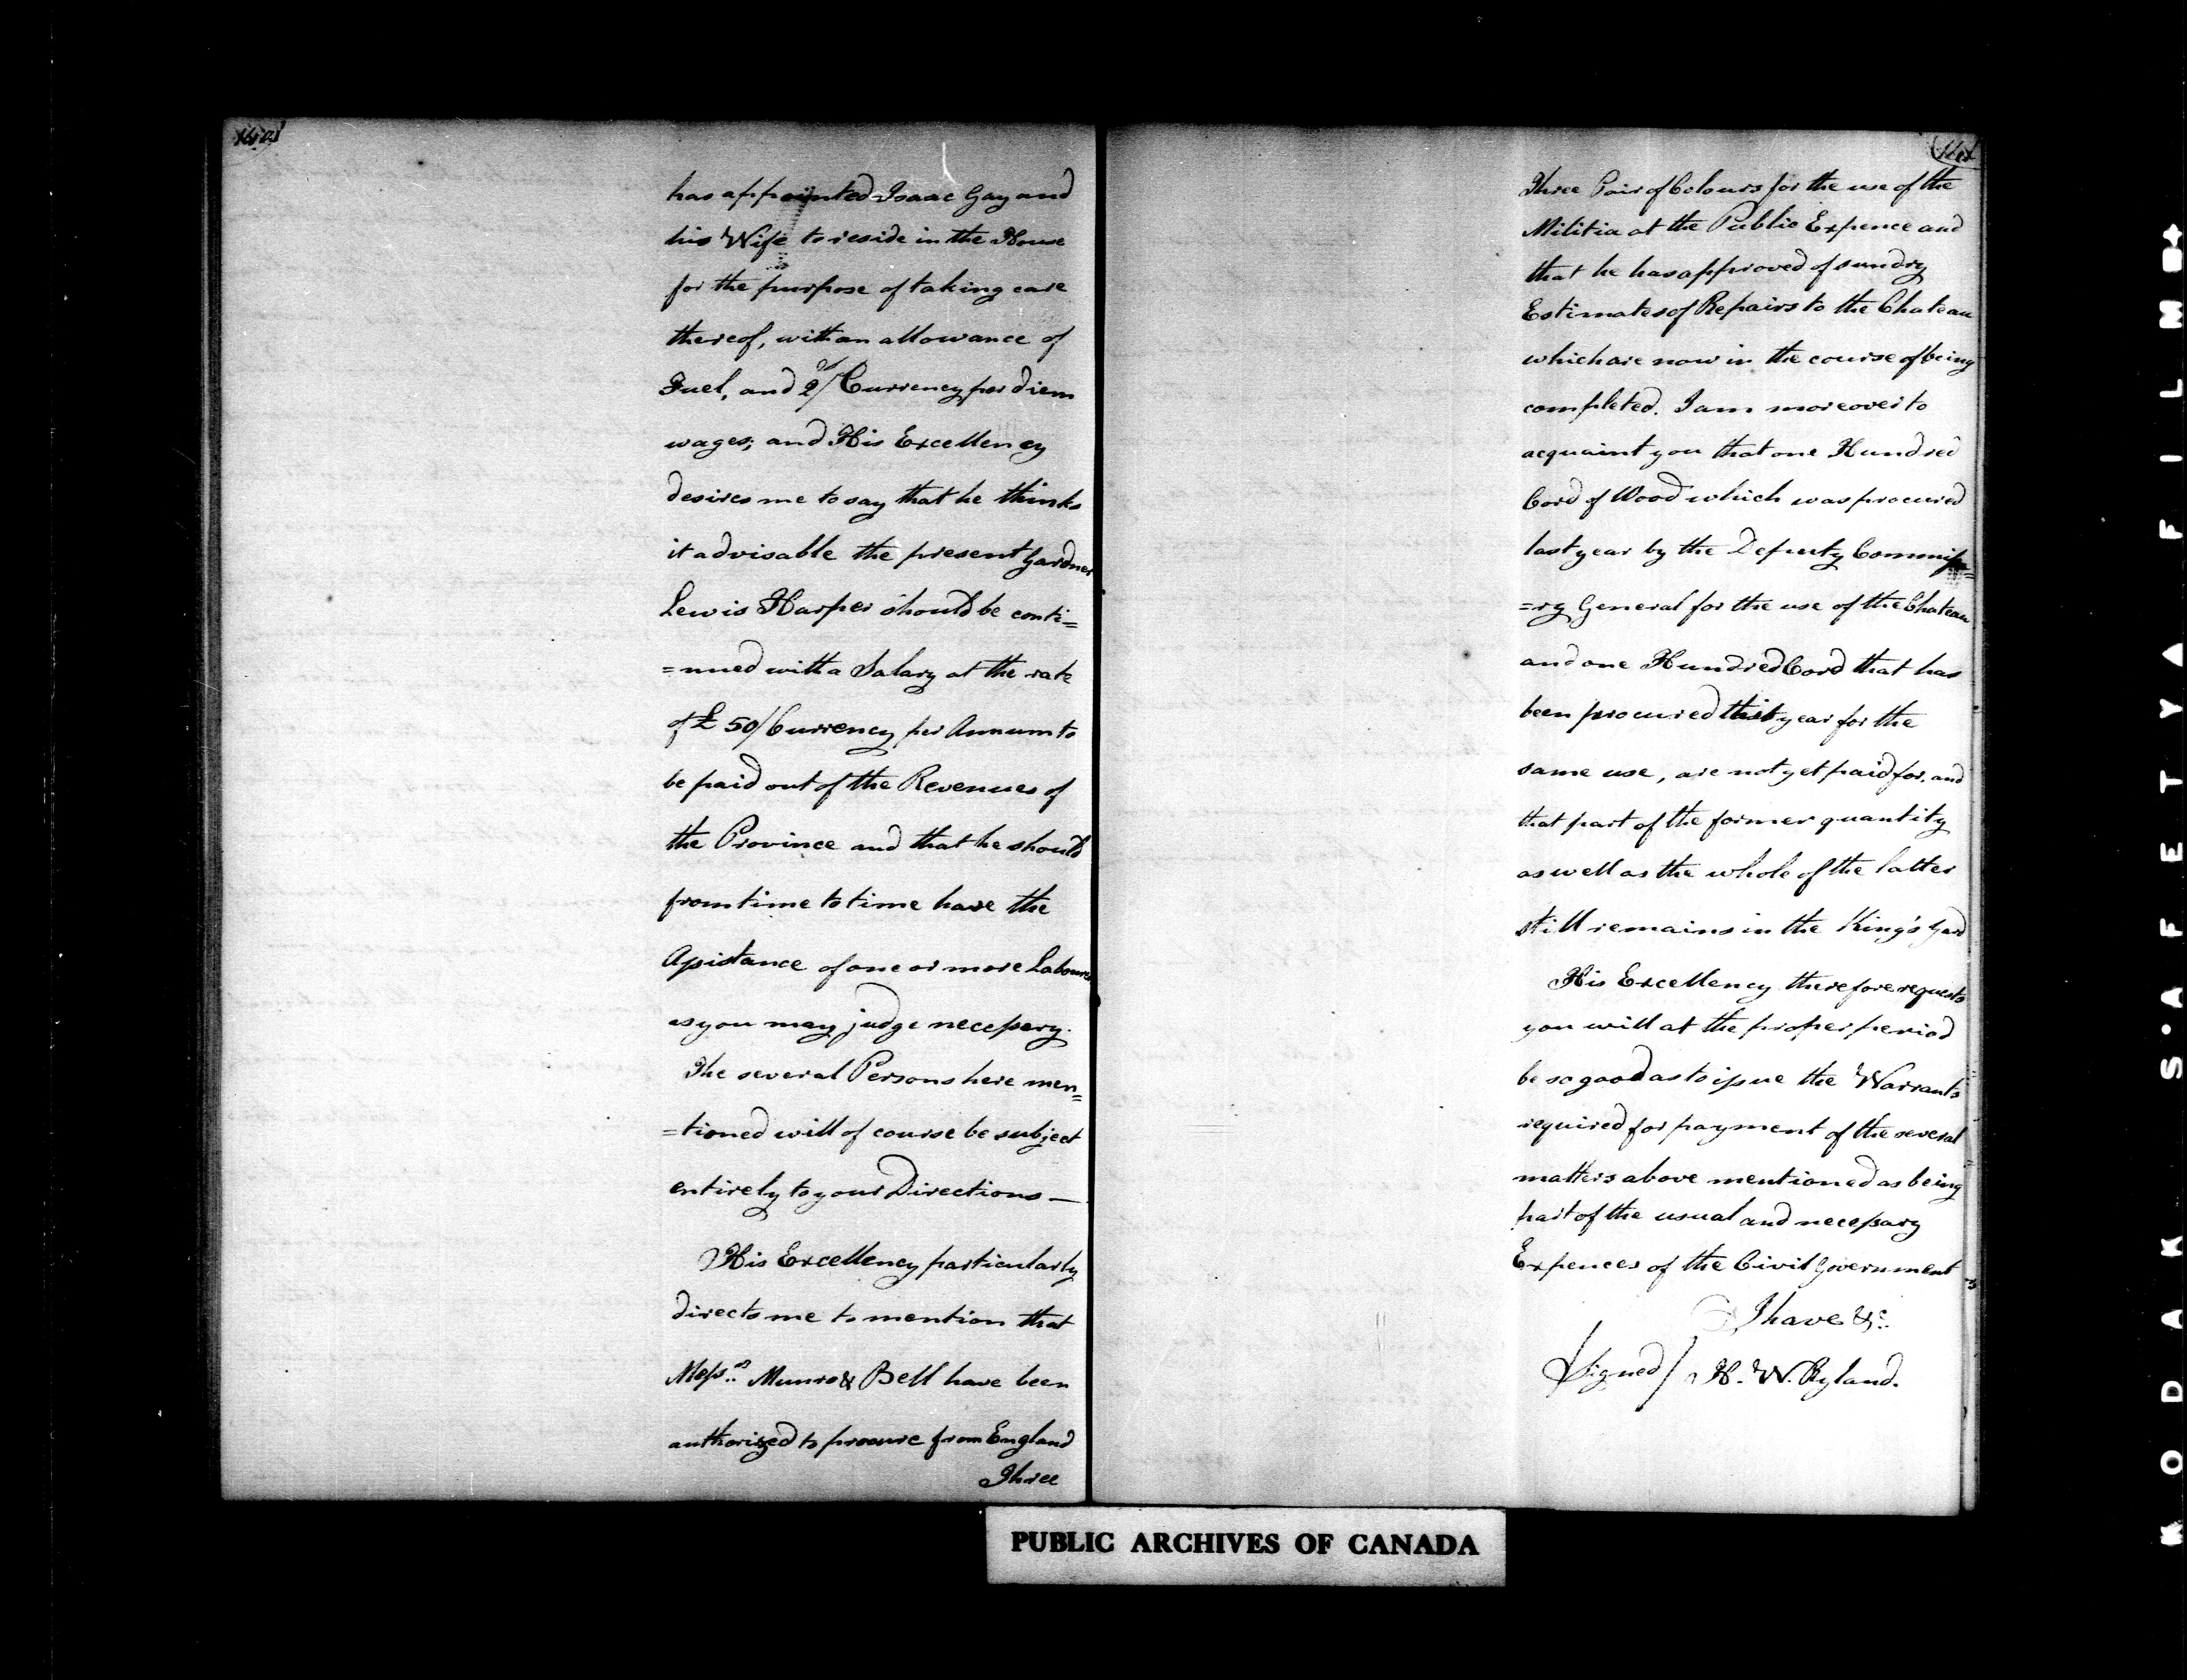 has appointed Isaac Gay and
his Wife to reside in the House
for the purpose of taking care
thereof, with an allowance of
Fuel, and 2/ Currency per diem
wages; and His Excellency
desires me to say that he thinks
it advisable the present Gardner
Lewis Harper should be conti=
=nued with a Salary at the rate
of £50/Currency per Annum to
be paid out of the Revenues of
the Province and that he should
from time to time have the
Assistance of one or more Labourers
as you may judge necessary.
The several Persons here men=
=tioned will of course be subject
entirely to your Directions—
His Excellency particularly
directs me to mention that
Mess.rs Munro & Bell have been
authorized to procure from England
Three
Three Pair of Colours for the use of the
Militia at the Public Expence and
that he has approved of sundry
Estimates of Repairs to the Chateau
which are now in the course of being
completed. I am moreover to
acquaint you that one Hundred
Cord of Wood which was procured
last year by the Deputy Commissa=
=ry General for the use of the Chateau
and one Hundred Cord that has
been procured this year for the
same use, are not yet paid for, and
that part of the former quantity
as well as the whole of the latter
still remains in the King's Yard
His Excellency therefore requests
you will at the proper period
be so good as to issue the Warrants
required for payment of the several
matters above mentioned as being
part of the usual and necessary
Expences of the Civil Government
I have &c.
/Signed/ H. W. Ryland.
PUBLIC ARCHIVES OF CANADA
KODAK S·A·F·E·T·Y FILM